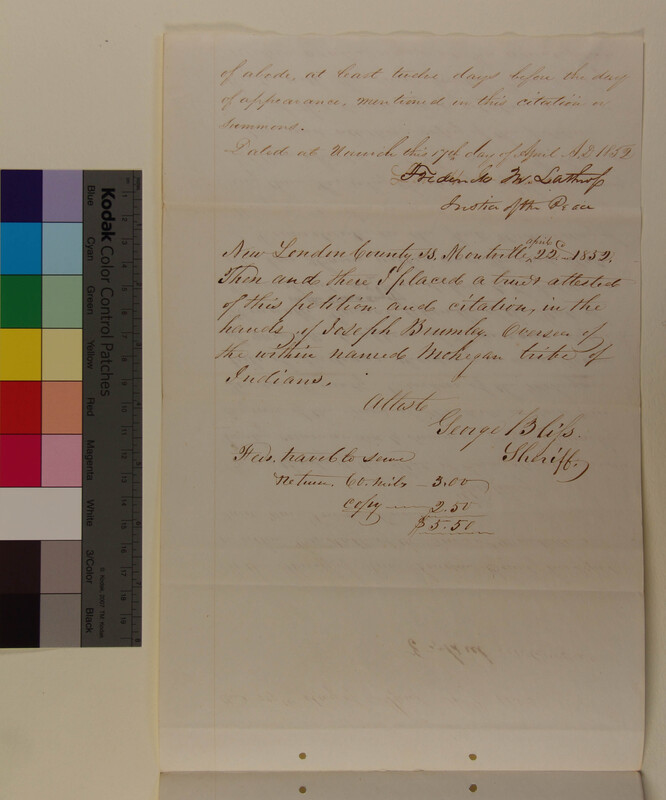 of abode, at least twelve days before the day
of appearance, mentioned in this citation or
summons.
Dated at this 17th day of April A.D. 1852
Frederick M. Lathrop
Justice of the Peace
New London County, ss. Montville, april 22 - 1852.
Then and there I placed a true attested
of this petition and citation, in the
hands of Joseph Brumley. Overseer of
the within named Mohegan tribe of
Indians.
Attest
George Bliss.
Sheriff.
Fees. travel to serve
Return. 60. mils - 3.00
copy - 2.50
$5.50
Kodak Color Control Patches
Blue
Cyan
Green
Yellow
Red
Magenta
White
3/Color
Black